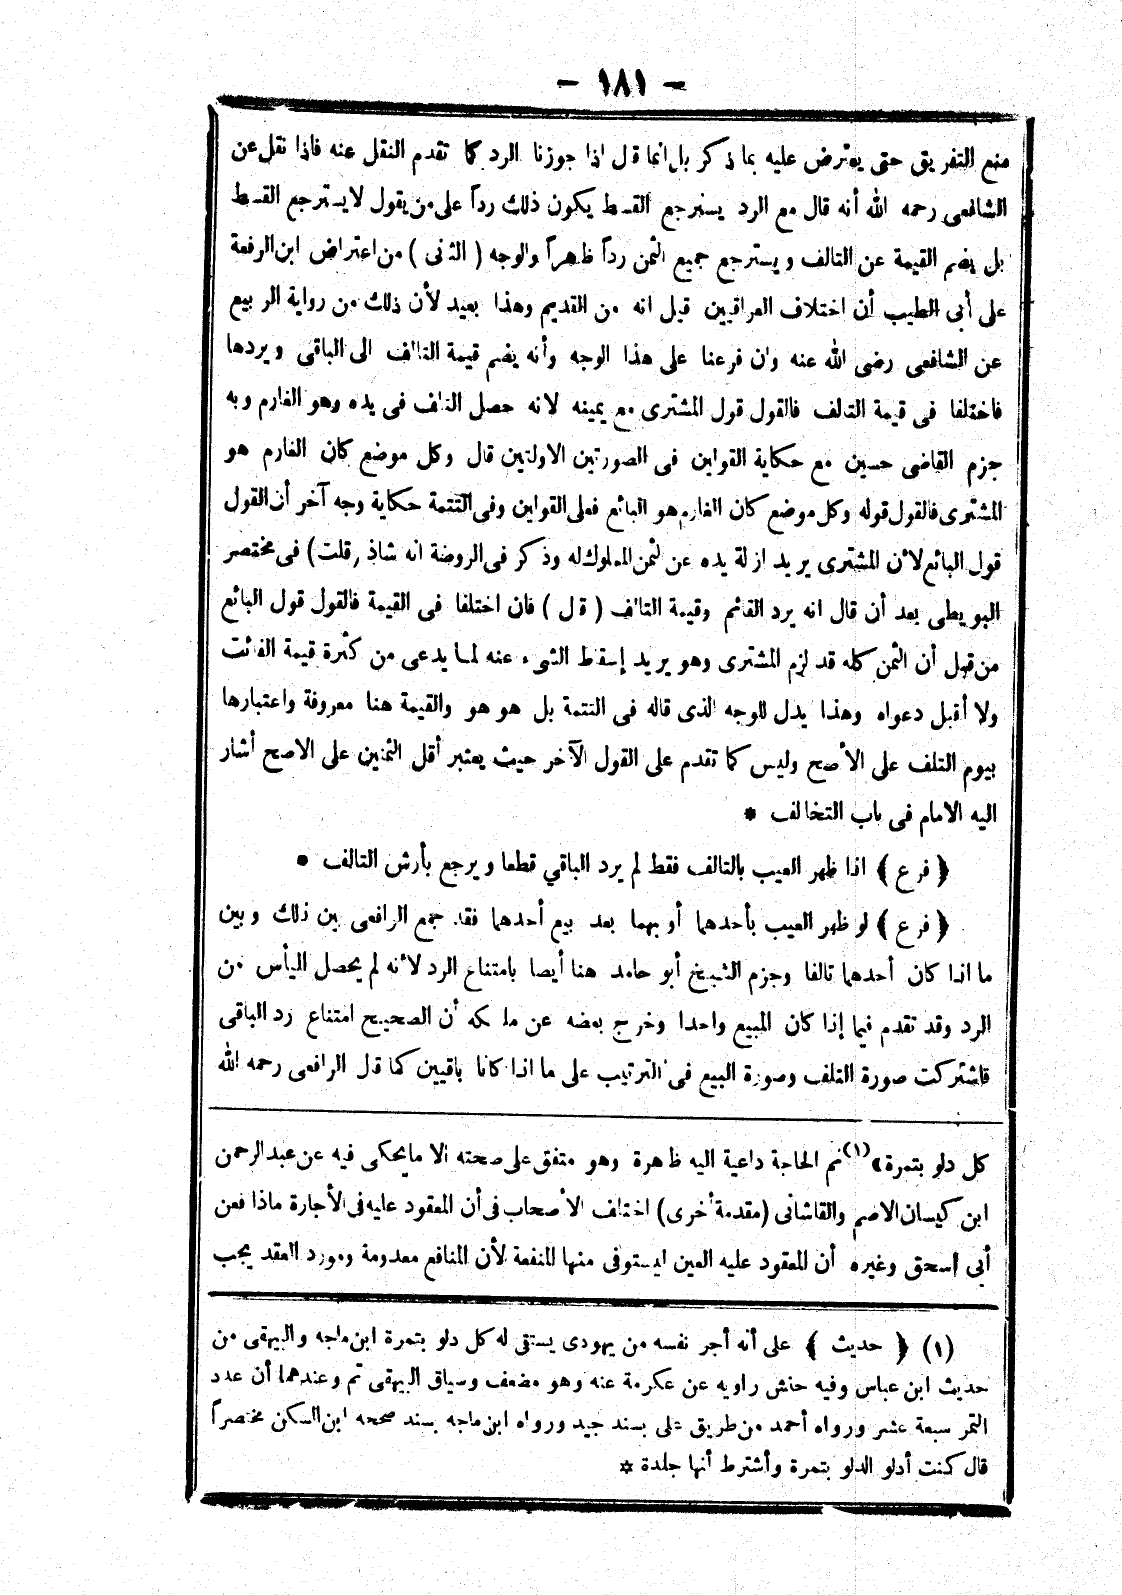 — ١٨١ —
منع التفريق حتى يعترض عليه بما ذكر بل انما قال اذا جوزنا الرد كما تقدم النقل عنه فاذا نقل عن
الشافعى رحمه الله أنه قال مع الرد يسترجع القسط يكون ذلك رداً على من يقول لا يسترجع القسط
بل يضم القيمة عن التالف ويسترجع جميع الثمن رداً ظاهراً والوجه ( الثانى ) من اعتراض ابن الرفعة
على أبى الطيب أن اختلاف العراقيين قيل انه من القديم وهذا بعيد لأن ذلك من رواية الربيع
عن الشافعى رضى الله عنه وان فرعنا على هذا الوجه وأنه يضم قيمة التالف الى الباقى ويردها
فاختلفا فى قيمة التالف فالقول قول المشترى مع يمينه لانه حصل التالف فى يده وهو الغارم وبه
جزم القاضى حسين مع حكاية القولين فى الصورتين الاولتين قال وكل موضع كان الغارم هو
المشترى فالقول قوله وكل موضع كان الغارم هو البائع فعلى القولين وفى التتمة حكاية وجه آخر أن القول
قول البائع لأن المشترى يريد ازالة يده عن الثمن المملوك له وذكر فى الروضة انه شاذ (قلت) فى مختصر
البويطى بعد أن قال انه يرد القائم وقيمة التالف ( قال ) فان اختلفا فى القيمة فالقول قول البائع
من قبل أن الثمن كله قد لزم المشترى وهو يريد إسقاط الشىء عنه لما يدعى من كثرة قيمة الفائت
ولا أقبل دعواه وهذا يدل للوجه الذى قاله فى التتمة بل هو هو والقيمة هنا معروفة واعتبارها
بيوم التلف على الأصح وليس كما تقدم على القول الآخر حيث يعتبر أقل الثمنين على الاصح أشار
اليه الامام فى باب التخالف *
﴿ فرع ﴾ اذا ظهر العيب بالتالف فقط لم يرد الباقي قطعا ويرجع بأرش التالف *
﴿ فرع ﴾ لو ظهر العيب بأحدهما أو بهما بعد بيع أحدهما فقد جمع الرافعى بين ذلك وبين
ما اذا كان أحدهما تالفا وجزم الشيخ أبو حامد هنا أيضا بامتناع الرد لأنه لم يحصل اليأس من
الرد وقد تقدم فيما إذا كان المبيع واحدا وخرج بعضه عن ملكه أن الصحيح امتناع رد الباقى
فاشتركت صورة التلف وصورة البيع فى الترتيب على ما اذا كانا باقيين كما قال الرافعى رحمه الله
كل دلو بتمرة»(١) ثم الحاجة داعية اليه ظاهرة وهو متفق على صحته الا ما يحكى فيه عن عبدالرحمن
ابن كيسان الاصم والقاشانى (مقدمة أخرى) اختلف الأصحاب فى أن المعقود عليه فى الأجارة ماذا فعن
أبى اسحق وغيره أن المعقود عليه العين ليستوفى منها المنفعة لأن المنافع معدومة ومورد العقد يجب
(١) ﴿ حديث ﴾ على أنه أجر نفسه من يهودى يستقى له كل دلو بتمرة ابن ماجه والبيهقى من
حديث ابن عباس وفيه حنش راويه عن عكرمة عنه وهو مضعف وسياق البيهقى تم وعندهما أن عدد
التمر سبعة عشر ورواه أحمد من طريق على بسند جيد ورواه ابن ماجه بسند صححه ابن السكن مختصراً
قال كنت أدلو الدلو بتمرة وأشترط أنها جلدة *